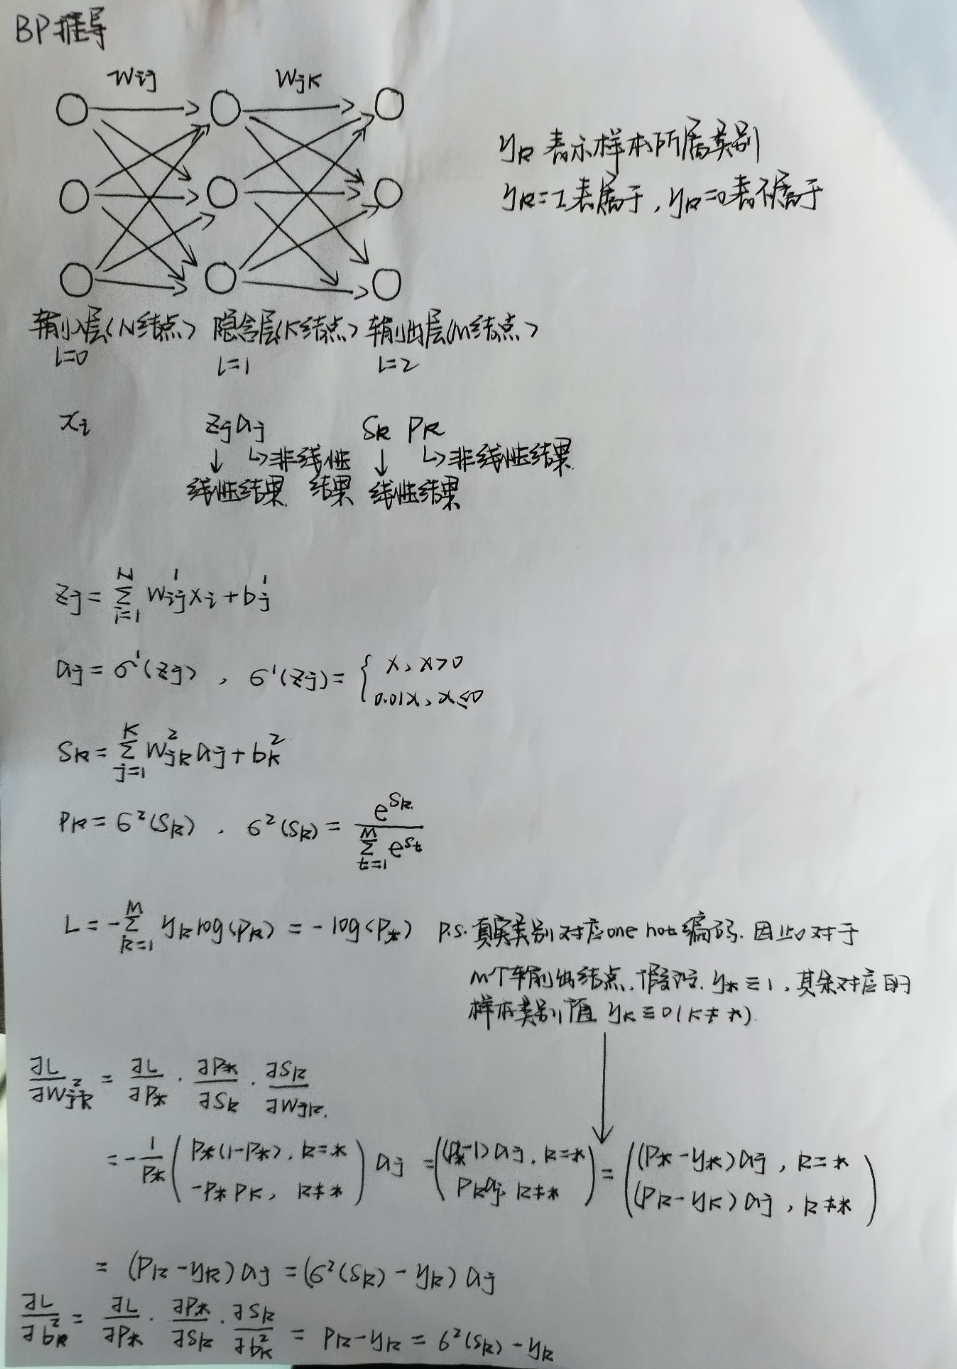 BP推导
Wij Wjk
yk 表示样本所属类别
yk=1表属于，yk=0表不属于
输入层(N结点) 隐含层(K结点) 输出层(M结点)
l=0 l=1 l=2
xi zj aj sk pk
↓ ↳非线性 ↓ ↳非线性结果
线性结果 结果 线性结果
zj = ∑_{i=1}^{N} w_{ij}^1 xi + b_j^1
aj = σ^1(zj) , σ^1(zj) = { x, x>0
0.01x, x≤0
sk = ∑_{j=1}^{K} w_{jk}^2 aj + b_k^2
pk = σ^2(sk) , σ^2(sk) = e^{sk} / ∑_{t=1}^{M} e^{st}
L = -∑_{k=1}^{M} yk log(pk) = -log(p*) P.S. 真实类别对应one hot编码. 因此对于
M个输出结点, 假设. y* ≡ 1, 其余对应的
样本类别值 yk ≡ 0 (k≠*)
∂L/∂w_{jk}^2 = ∂L/∂p* · ∂p*/∂sk · ∂sk/∂wjk
= -1/p* ( p*(1-p*), k=* ; -p* pk, k≠* ) aj = ( (p*-1)aj, k=* ; pk aj, k≠* ) = ( (p*-y*)aj, k=* ; (pk-yk)aj, k≠* )
= (pk-yk)aj = (σ^2(sk)-yk)aj
∂L/∂b_k^2 = ∂L/∂p* · ∂p*/∂sk · ∂sk/∂b_k^2 = pk-yk = σ^2(sk)-yk